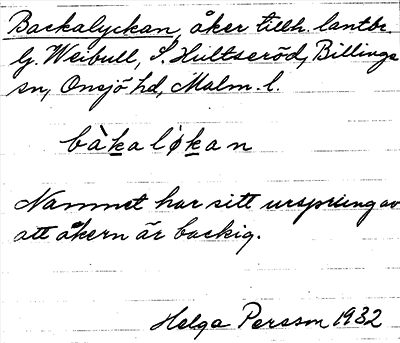 Backalyckan, åker tillh. lantbr.
G. Weibull, S. Hultseröd, Billinge
sn, Onsjö hd, Malm. l.
bàkalø̀kan
Namnet har sitt ursprung av
att åkern är backig.
Helga Persson 1932